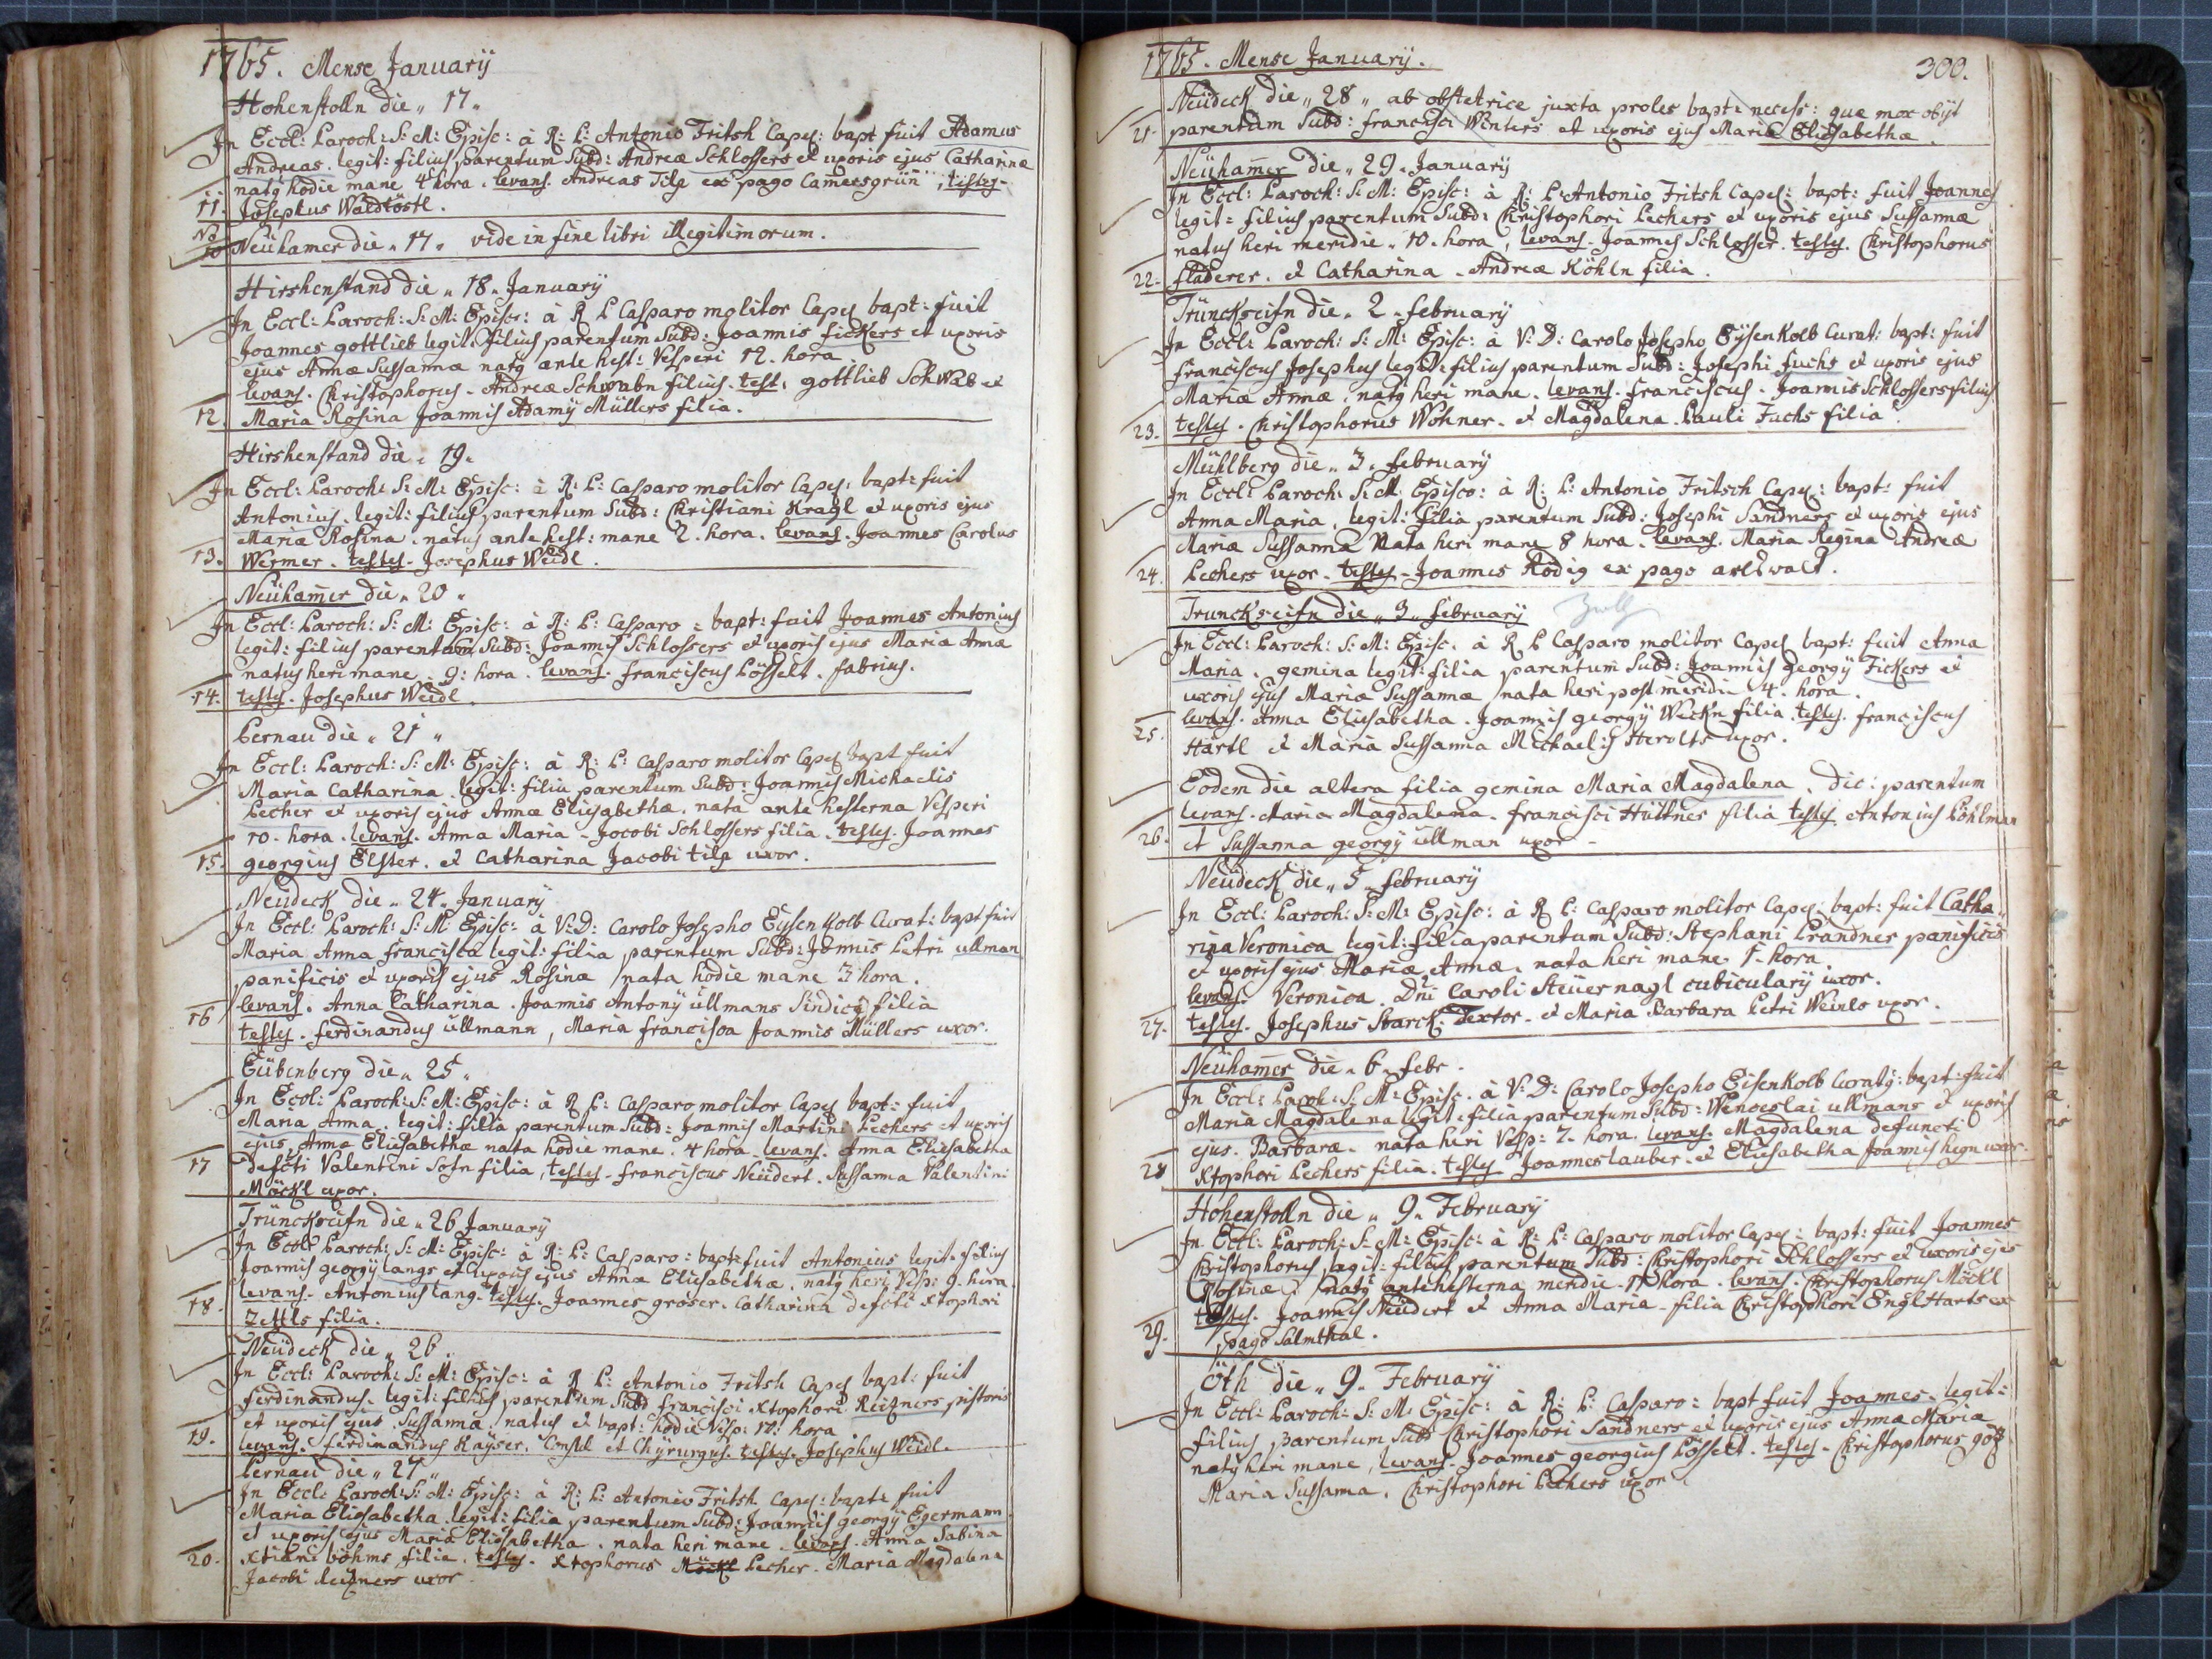 1765. Mense Januarÿ
Hohenstolln die „ 17 „
Jn Eccl: Paroch: S: M: Episc: à R: P: Antonio Fritsh Capel: bapt fuit Adamus
Andreas. legit: filius parentum Subd: Andreæ Schlossers et uxoris ejus Catharinæ
natg hodie mane 4 hora. levans. Andreas Tilp ex pago Cameesgrün, testes-
11. Josephus Waldtöstl.
Neühamer die „ 17 „ vide in fine libri illegitimorum.
Hirshenstand die „ 18 „ Januarÿ
Jn Eccl: Paroch: S: M: Episc: à R P Casparo molitor Capel bapt: fuit
Joannes gottlieb legit: filius parentum Subd: Joannis fickers et uxoris
ejus Annæ Sussannæ natg ante hest: Vesperi 12. hora
levans. Christophorus - Andreæ Schwabn filius. test. gottlieb Schwab et
12. Maria Rosina Joannis Adamÿ Müllers filia.
Hirshenstand die „ 19 „
Jn Eccl: Paroch: S: M: Episc: à R: P: Casparo molitor Capel: bapt: fuit
Antonius. legit: filius parentum Subd: Christiani Kragl et uxoris ejus
Mariæ Rosinæ. natus ante hest: mane 2. hora. levans. Joannes Carolus
13. Wermer. testes - Josephus Weidl.
Neühamer die „ 20 „
Jn Eccl: Paroch: S: M: Episc: à R: P: Casparo: bapt: fuit Joannes Antonius
legit: filius parentum Subd: Joannis Schlossers et uxoris ejus Mariæ Annæ
natus heri mane. 9: hora. levans. franciscus Pösselt. fabrius.
14. testes. Josephus Weidl.
Pernau die „ 21 „
Jn Eccl: Paroch: S: M: Episc: à R: P: Casparo molitor Capel bapt fuit
Maria Catharina. legit: filia parentum Subd: Joannis Michaelis
Pecher et uxoris ejus Annæ Eliesabethæ. nata ante hesterna Vesperi
10. hora. levans. Anna Maria - Jacobi Schlossers filia. testes. Joannes
15. georgius Elster. et Catharina Jacobi tilp uxor.
Neüdeck die „ 24 „ Januarÿ
Jn Eccl: Paroch: S: M: Episc: à V: D: Carolo Josepho Eÿsenkolb Curat: bapt fuit
Maria Anna francisca legit: filia parentum Subd: Joannis Petri ullman
panificis et uxoris ejus Rosinæ nata hodie mane 3 hora.
16 levans. Anna Catharina. Joannis Antonÿ ullmans Sindici filia
testes. ferdinandus ullmann, Maria francisca Joannis Müllers uxor.
Eübenberg die „ 25 „
Jn Eccl: Paroch: S: M: Episc: à R P: Casparo molitor Capel bapt: fuit
Maria Anna. legit: filia parentum Subd: Joannis Martini Pechers et uxoris
ejus Annæ Eliesabethæ nata hodie mane. 4 hora. levans. Anna Eliesabetha
17 defcti Valentini Sosn filia, testes - franciscus Neüdert. Sussanna Valentini
Möckl uxor.
Trünckseifn die „ 26 Januarÿ
Jn Eccl: Paroch: S: M: Episc: à R: P: Casparo: bapt: fuit Antonius legit: filius
Joannis georgÿ langs et uxoris ejus Annæ Eliesabethæ. natg heri Vesp: 9. hora.
18. levans. Antonius lang. testes. Joannes groser. Catharina defcti Xtophori
Zettls filia.
Neüdeck die „ 26 „
Jn Eccl: Paroch: S: M: Episc: à R P: Antonio Fritsh Capel bapt: fuit
ferdinandus. legit: filius parentum Subd francisci Xtophori Reitzners pistoris
et uxoris ejus Sussannæ natus et bapt: hodie Vesp: 10: hora
19. levans. ferdinandus Kaÿser. Consul et Chÿrurgus. testes. Josephus Weidl.
Pernau die „ 27 „
Jn Eccl: Paroch: S: M: Episc: à R: P: Antonio Fritsh Capel: bapt: fuit
Maria Eliesabetha. legit: filia parentum Subd: Joannis georgÿ Egermann
et uxoris ejus Maria Eliesabetha. nata heri mane. levans. Anna Sabina
20. Xtiani böhms filia. testes. Xtophorus Möckl Pecher. Maria Magdalena
Jacobi Reitzners uxor
1765. Mense Januarÿ.
300.
Neüdeck die „ 28 „ ab obstetrice juxta proles bapt: necess: quæ mox obÿt
21. parentum Subd: francisci Winters et uxoris ejus Mariæ Eliesabethæ.
Neühamer die „ 29 „ Januarÿ
Jn Eccl: Paroch: S: M: Episc: à R: P: Antonio Fritsh Capel: bapt: fuit Joannes
legit: filius parentum Subd: Christophori Pechers et uxoris ejus Sussannæ
natus heri meridie „ 10. hora, levans. Joannes Schlosser. testes. Christophorus
22. fladerer. et Catharina - Andreæ Köhln filia.
Trünckseifn die „ 2 „ februarÿ
Jn Eccl: Paroch: S: M: Episc: à V: D: Carolo Josepho Eÿsenkolb Curat: bapt: fuit
franciscus Josephus legit: filius parentum Subd: Josephi fuchs et uxoris ejus
Mariæ Annæ. natg heri mane. levans. franciscus. Joannis Schlossers filius
23. testes. Christophorus Wohner. et Magdalena. Pauli Fuchs filia.
Mühlberg die „ 3 „ februarÿ
Jn Eccl: Paroch: S: M: Episco: à R: P: Antonio Fritsch Capel: bapt: fuit
Anna Maria, legit: filia parentum Subd: Josephi Sandners et uxoris ejus
Mariæ Sussannæ Nata heri mane 8 hora. levans. Maria Regina Andreæ
24. Pechers uxor. testes. Joannes Rödig ex pago arltwalt.
Trunckseifn die „ 3 „ februarÿ
Jn Eccl: Paroch: S: M: Episc: à R P Casparo molitor Capel bapt: fuit Anna
Maria. gemina legit: filia parentum Subd: Joannis georgÿ Fickers et
uxoris ejus Mariæ Sussannæ nata heri post meridie 4. hora.
25. levans. Anna Eliesabetha. Joannis georgÿ Weckn filia. testes. franciscus
Härtl et Maria Sussanna Michaelis Herolts uxor.
Eodem die altera filia gemina Maria Magdalena. dic: parentum
levans. Maria Magdalena. francisci Hüttner filia testes. Antonius Pöhlman
26. et Sussanna georgÿ ullman uxor -
Neüdeck die „ 5 „ februarÿ
Jn Eccl: Paroch: S: M: Episc: à R P: Casparo molitor Capel: bapt: fuit Catha
rina Veronica legit: filia parentum Subd: Stephani Prandner panificis
et uxoris ejus Mariæ Annæ. nata heri mane 1. hora.
levans. Veronica. Dni Caroli Steüernagl cubicularÿ uxor.
27. testes. Josephus Starck. Textor. et Maria Barbara Petri Weinlo uxor.
Neühamer die „ 6 „ febr.
Jn Eccl: Paroh: S: M: Episc. à V: D: Carolo Josepho Eisenkolb Curatg: bapt: fuit
Maria Magdalena legit: filia parentum Subd: Wenceslai ullmans et uxoris
ejus. Barbaræ. nata heri Vesp: 7. hora. levans. Magdalena defuncti
28 Xtophori Pechers filia. testes Joannes lauber. et Eliesabetha Joannis hegn uxor.
Hohenstolln die „ 9 „ Februarÿ
Jn Eccl: Paroch: S: M: Episc: à R: P: Casparo molitor Capel: bapt: fuit Joannes
Christophorus, legit: filius parentum Subd: Christophori Schlossers et uxoris ejus
Rosinæ. natg antehesterna meridie. 11 hora. levans. Christophorus Möckl
testes. Joannes Neüdert et Anna Maria. filia Christophori Englharts ex
29. pago Salmthal.
Öth die „ 9 „ Februarÿ
Jn Eccl: Paroch: S: M: Episc: à R: P: Casparo: bapt fuit Joannes. legit:
filius parentum Subd Christophori Sandners et uxoris ejus Annæ Mariæ
natg heri mane, levans. Joannes georgius Pösselt. testes. Christophorus goß
Maria Sussanna. Christophori Pechers uxor